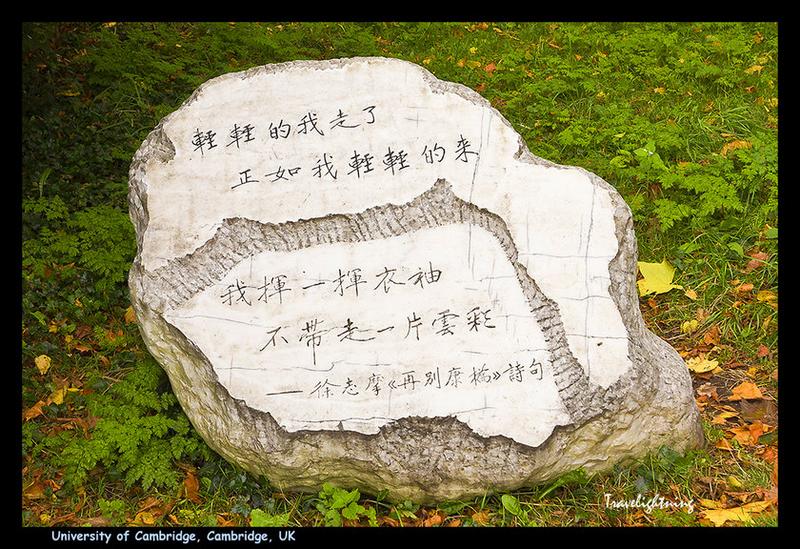 輕輕的我走了
正如我輕輕的来
我揮一揮衣袖
不带走一片雲彩
——徐志摩《再别康橋》詩句
Travelightning
University of Cambridge, Cambridge, UK